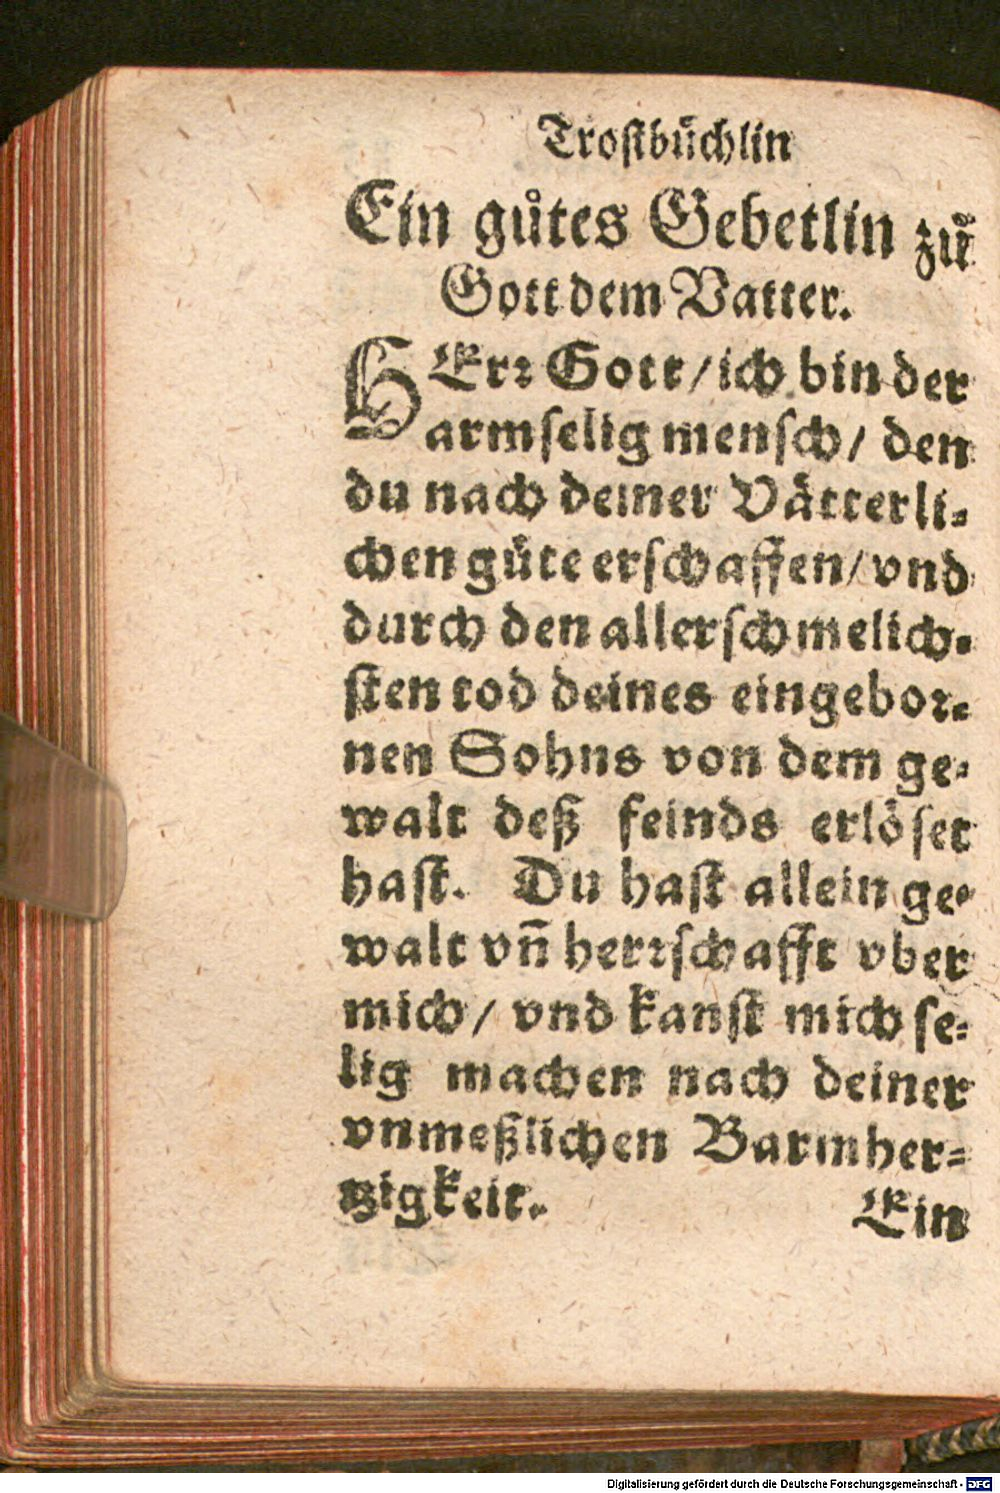 Trostbüchlin
Ein gůtes Gebetlin zů
Gott dem Vatter.
HErr Gott / ich bin der
armselig mensch / den
du nach deiner Vätterli-
chen güte erschaffen / vnd
durch den allerschmelich-
sten tod deines eingebor-
nen Sohns von dem ge-
walt deß feinds erlöset
hast. Du hast allein ge-
walt vñ herrschafft vber
mich / vnd kanst mich se-
lig machen nach deiner
vnmeßlichen Barmher-
tzigkeit. Ein
Digitalisierung gefördert durch die Deutsche Forschungsgemeinschaft - DFG